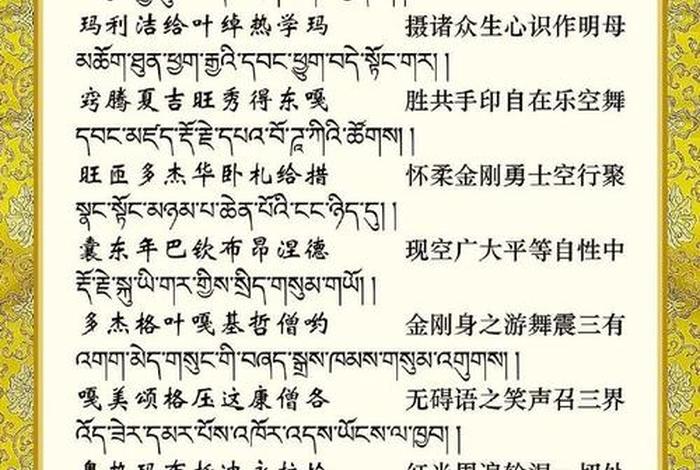 玛利洁给叶绰热学玛 摄诸众生心识作明母
མཆོག་ཐུན་ཕྱག་རྒྱའི་དབང་ཕྱུག་བདེ་སྟོང་གར། །
窍腾夏吉旺秀得东嘎 胜共手印自在乐空舞
དབང་མཛད་རྡོ་རྗེ་དཔའ་བོ་ཌཱ་ཀིའི་ཚོགས། །
旺匝多杰华卧札给措 怀柔金刚勇士空行聚
སྣང་སྟོང་མཉམ་པ་ཆེན་པོའི་ངང་ཉིད་དུ། །
囊东年巴钦布昂涅德 现空广大平等自性中
རྡོ་རྗེ་སྐུ་ཡི་གར་གྱིས་སྲིད་གསུམ་གཡོ། །
多杰格叶嘎基哲僧哟 金刚身之游舞震三有
འགག་མེད་གསུང་གི་བཞད་སྒྲས་ཁམས་གསུམ་འགུགས། །
嘎美颂格压这康僧各 无碍语之笑声召三界
འོད་ཟེར་དམར་པོས་འཁོར་འདས་ཡོངས་ལ་ཁྱབ། །